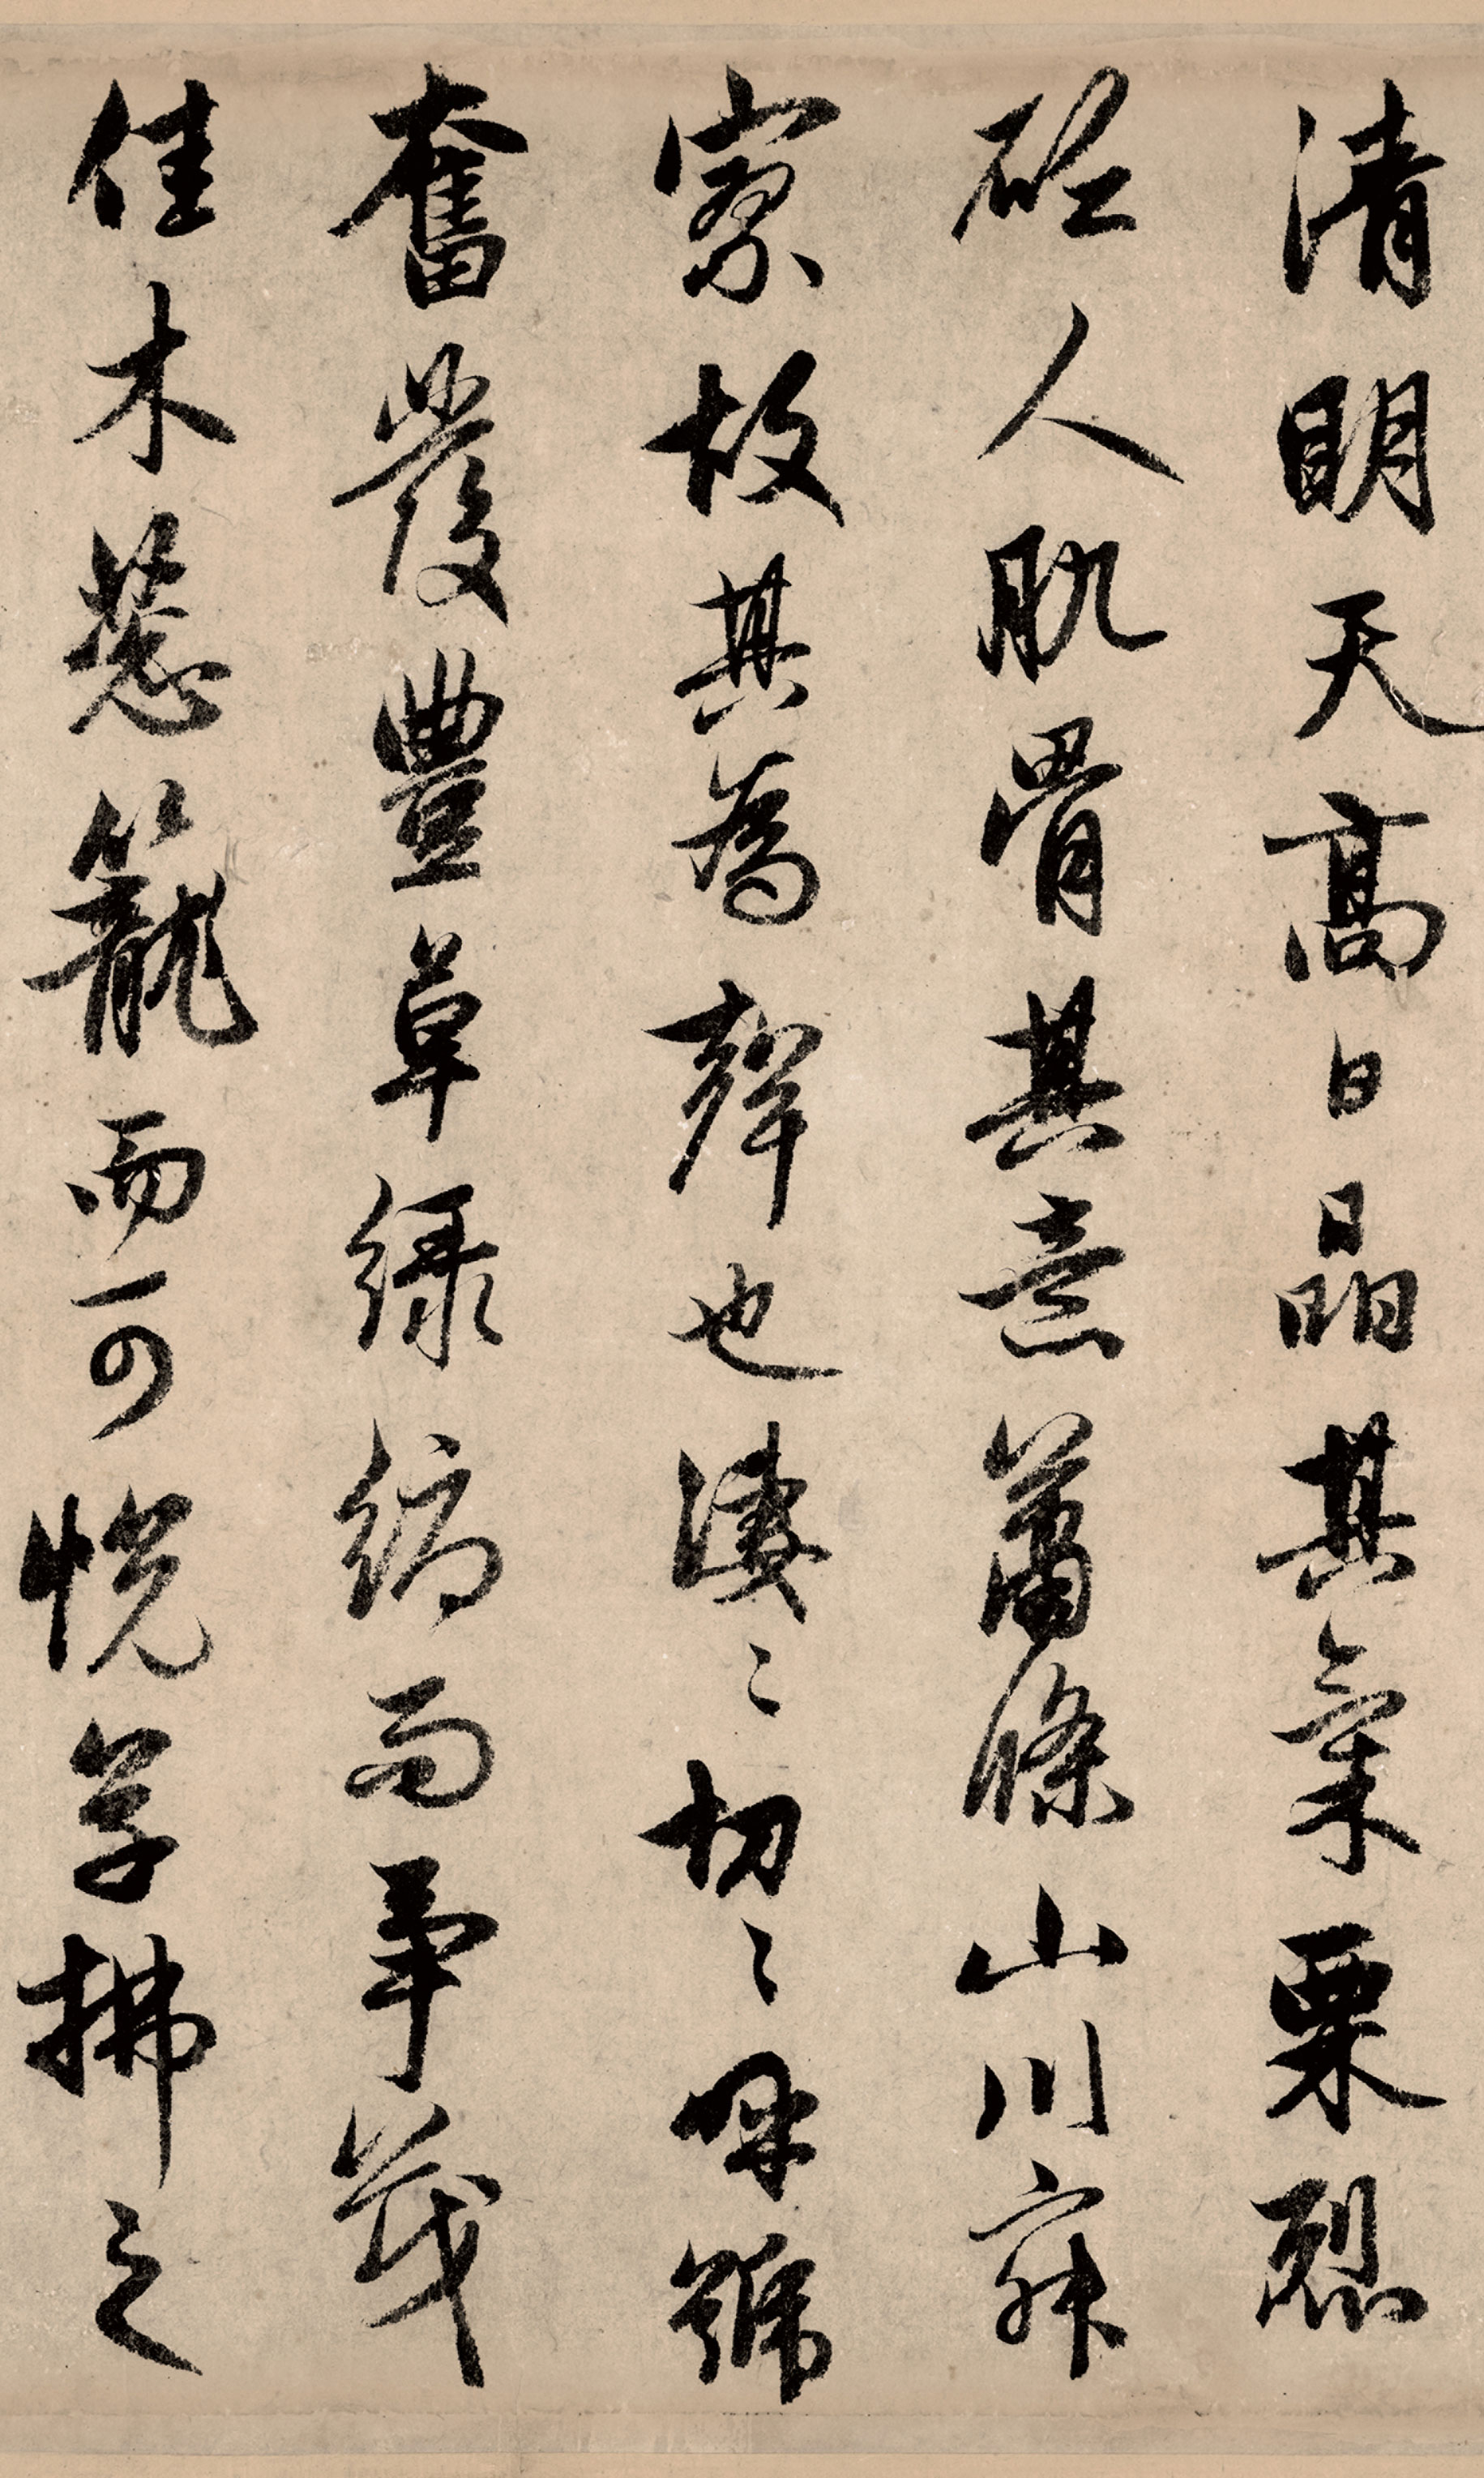 清明天高日晶其氣栗烈
砭人肌骨其意蕭條山川寂
寥故其為聲也淒〻切〻呼號
奮發豐草綠縟而爭茂
佳木葱籠而可悅草拂之